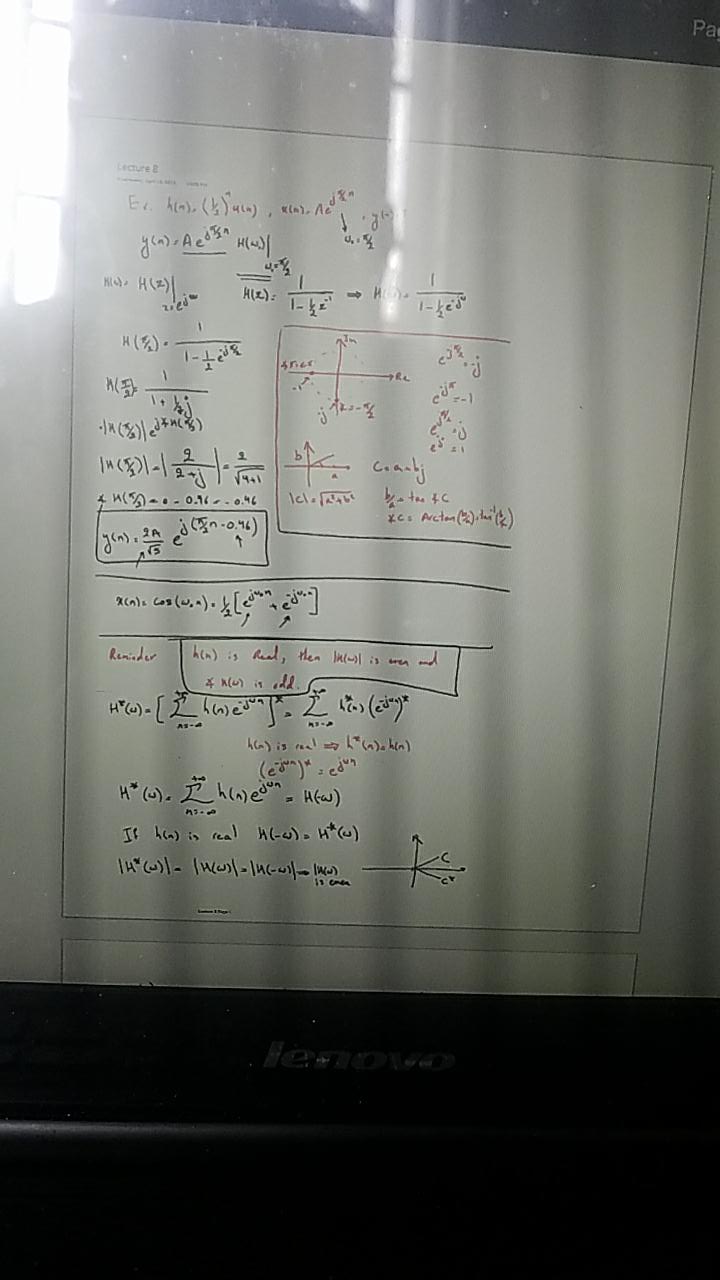 Lecture 8
Ex. h(n) = (1/2)^n u(n), x(n) = Ae^{jπ/2 n}, y(n)
ω₀ = π/2
y(n) = Ae^{jπ/2 n} H(ω)|
ω₀ = π/2
H(ω) = H(z)|_{z=e^{jω}} H(z) = 1/(1 - 1/2 z^{-1}) ⇒ H(ω) = 1/(1 - 1/2 e^{-jω})
H(π/2) = 1/(1 - 1/2 e^{-jπ/2})
H(π/2) = 1/(1 + 1/2 j)
= |H(π/2)| e^{j∡H(π/2)}
|H(π/2)| = |2/(2+j)| = 2/√(4+1)
∡H(π/2) = 0 - 0.46 = -0.46
y(n) = 2A/√5 e^{j(π/2 n - 0.46)}
Im
Re
-1
j
-π/2
e^{-jπ/2} = -j
e^{jπ} = -1
e^{jπ/2} = j
= 1
b
a
c = a + bj
|c| = √(a² + b²) b/a = tan ∡c
∡c = Arctan(b/a) = tan⁻¹(b/a)
x(n) = cos(ω₀n) = 1/2 [e^{jω₀n} + e^{-jω₀n}]
Reminder
h(n) is Real, then |H(ω)| is even and
∡H(ω) is odd.
H*(ω) = [Σ_{n=-∞}^{+∞} h(n) e^{-jωn}]* = Σ_{n=-∞}^{+∞} h*(n) (e^{-jωn})*
h(n) is real ⇒ h*(n) = h(n)
(e^{-jωn})* = e^{jωn}
H*(ω) = Σ_{n=-∞}^{+∞} h(n) e^{jωn} = H(-ω)
If h(n) is real H(-ω) = H*(ω)
|H*(ω)| = |H(ω)| = |H(-ω)| → |H(ω)|
is even
C
C*
Lecture 8 Page 1
lenovo